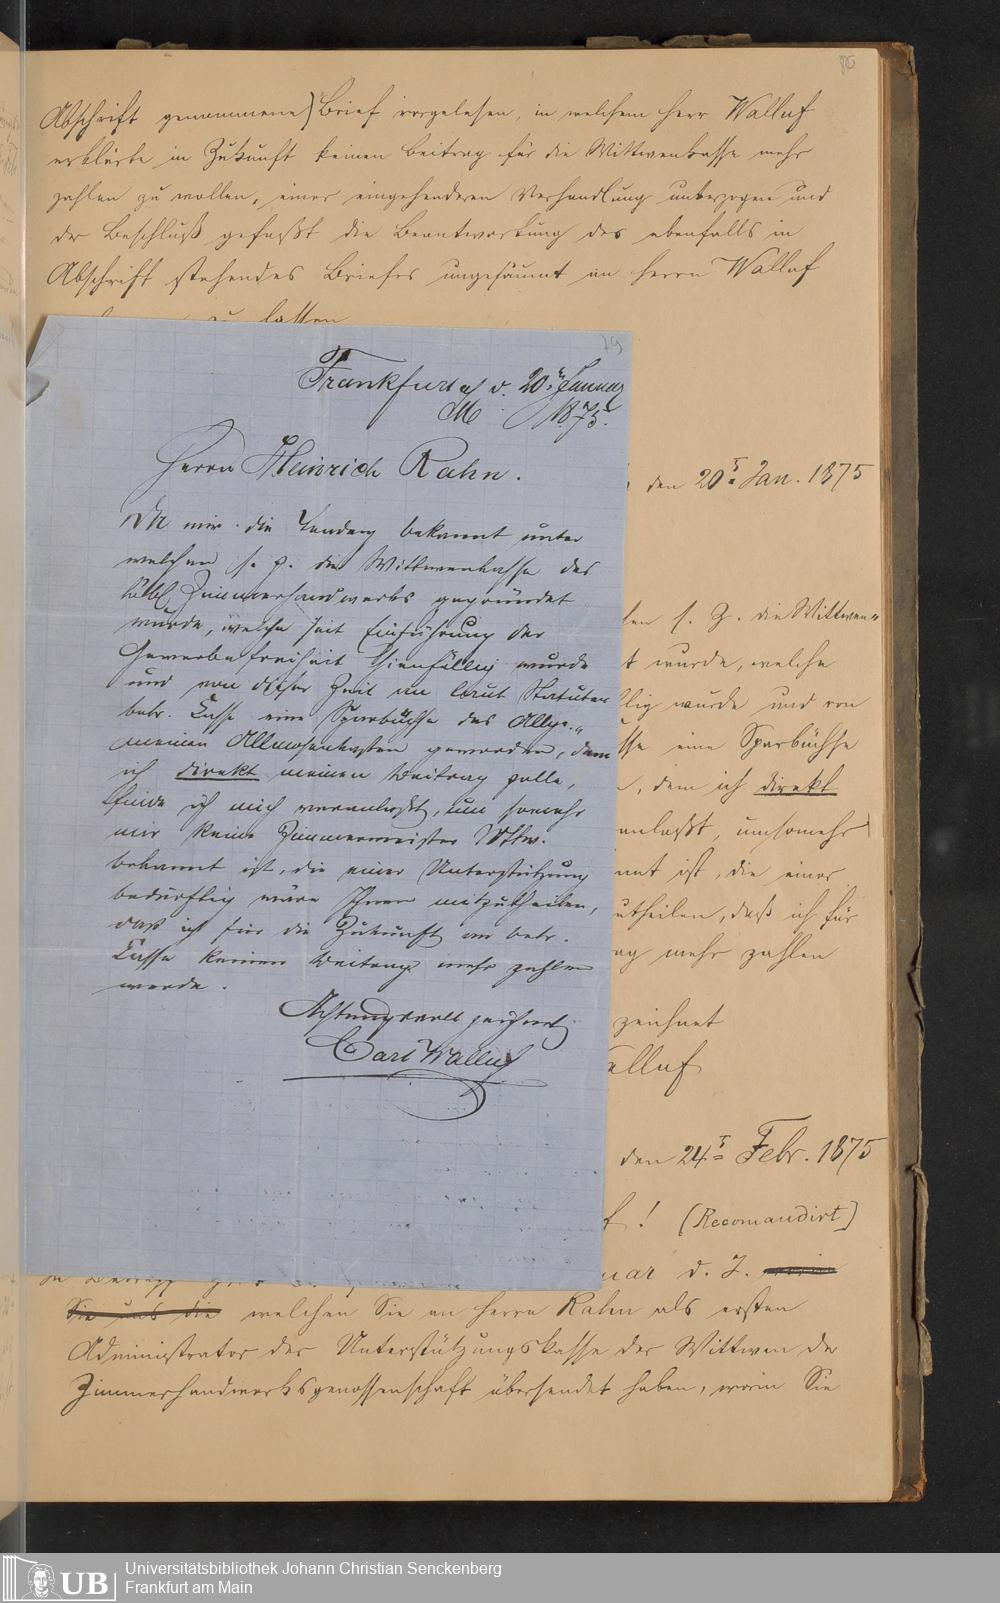 80
Abschrift genommene) Brief vorgelesen, in welchem Herr Walluf
erklärte in Zukunft keinen Beitrag für die Wittwenkasse mehr
zahlen zu wollen, einer eingehenderen Verhandlung unterzogen und
der Beschluß gefaßt die Beantwortung des ebenfalls in
Abschrift stehendes Briefes ungesäumt an Herrn Walluf
zu lassen
79
Frankfurt a/ d. 20t Januar
M 1875.
Herrn Heinrich Rahn.
Da mir die bekannt unter
welchen s. Z. die Wittwenkasse des
löbl. Zimmerhandwerks gegründet
wurde, welche seit Einführung der
Gewerbefreiheit hinfällig wurde
und von dieser Zeit an laut Statuten
betr. Casse eine Sparbüchse des Allge-
meinen Allmosenkasten geworden, dem
ich direkt meinen Beitrag zolle,
finde ich mich veranlaßt, um somehr
mir keine Zimmermeister Wttw.
bekannt ist, die einer Unterstützung
bedürftig wäre Ihnen mitzutheilen,
daß ich für die Zukunft an betr.
Casse keinen Beitrag mehr zahlen
werde.
Achtungsvoll zeichnet
Carl Walluf
den 20t Jan. 1875
s. Z. die Wittwen-
t wurde, welche
llig wurde und von
sse eine Sparbüchse
dem ich direkt
anlaßt, umsomehr
nnt ist, die einer
utheilen, daß ich für
ag mehr zahlen
zeichnet
alluf
den 24t Febr. 1875
f! (Recomandirt)
uar d. J.
Sie uns die welchen Sie an Herrn Rahn als ersten
Administrator der Unterstützungskasse der Wittwen der
Zimmerhandwerksgenossenschaft übersendet haben, worin Sie
UB
Universitätsbibliothek Johann Christian Senckenberg
Frankfurt am Main